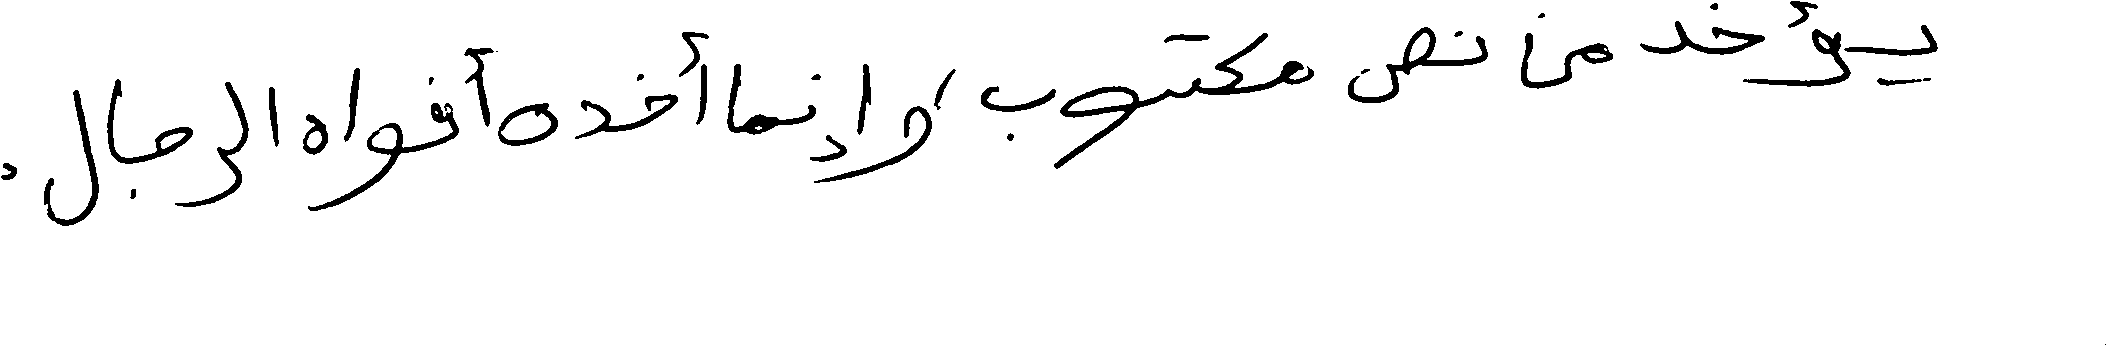 يؤخد من نص مكتوب، وإنما أخده أفواه الرجال.